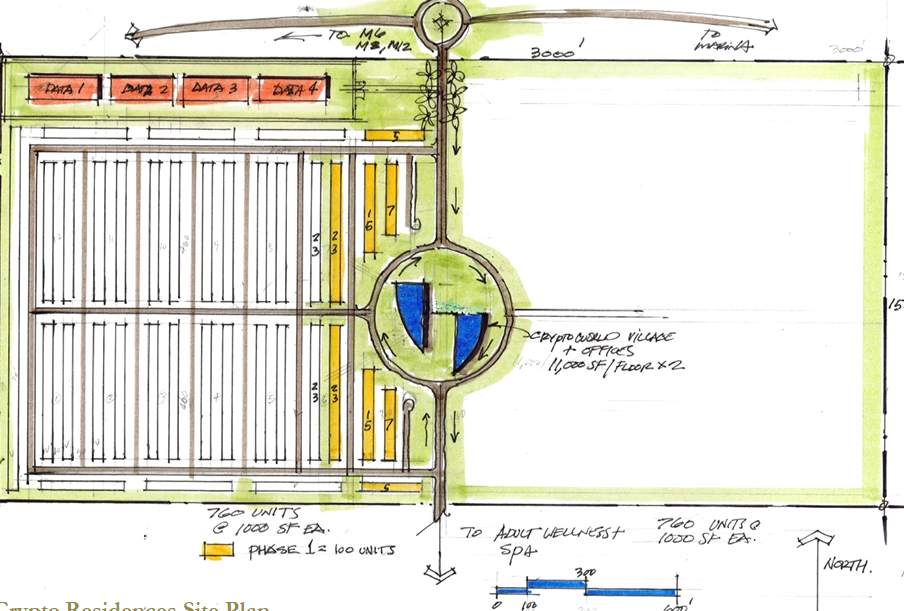 TO M6
M3, M12
TO
MARINA
3000'
3000'
DATA 1
DATA 2
DATA 3
DATA 4
5
23
23
15
7
23
23
15
7
15
CRYPTOWORLD VILLAGE
+ OFFICES
11,000 SF/FLOOR X 2
5
760 UNITS
@ 1000 SF EA.
PHASE 1 = 100 UNITS
TO ADULT WELLNESS +
SPA
760 UNITS @
1000 SF EA.
NORTH.
300
0 100 600'
Crypto Residences Site Plan